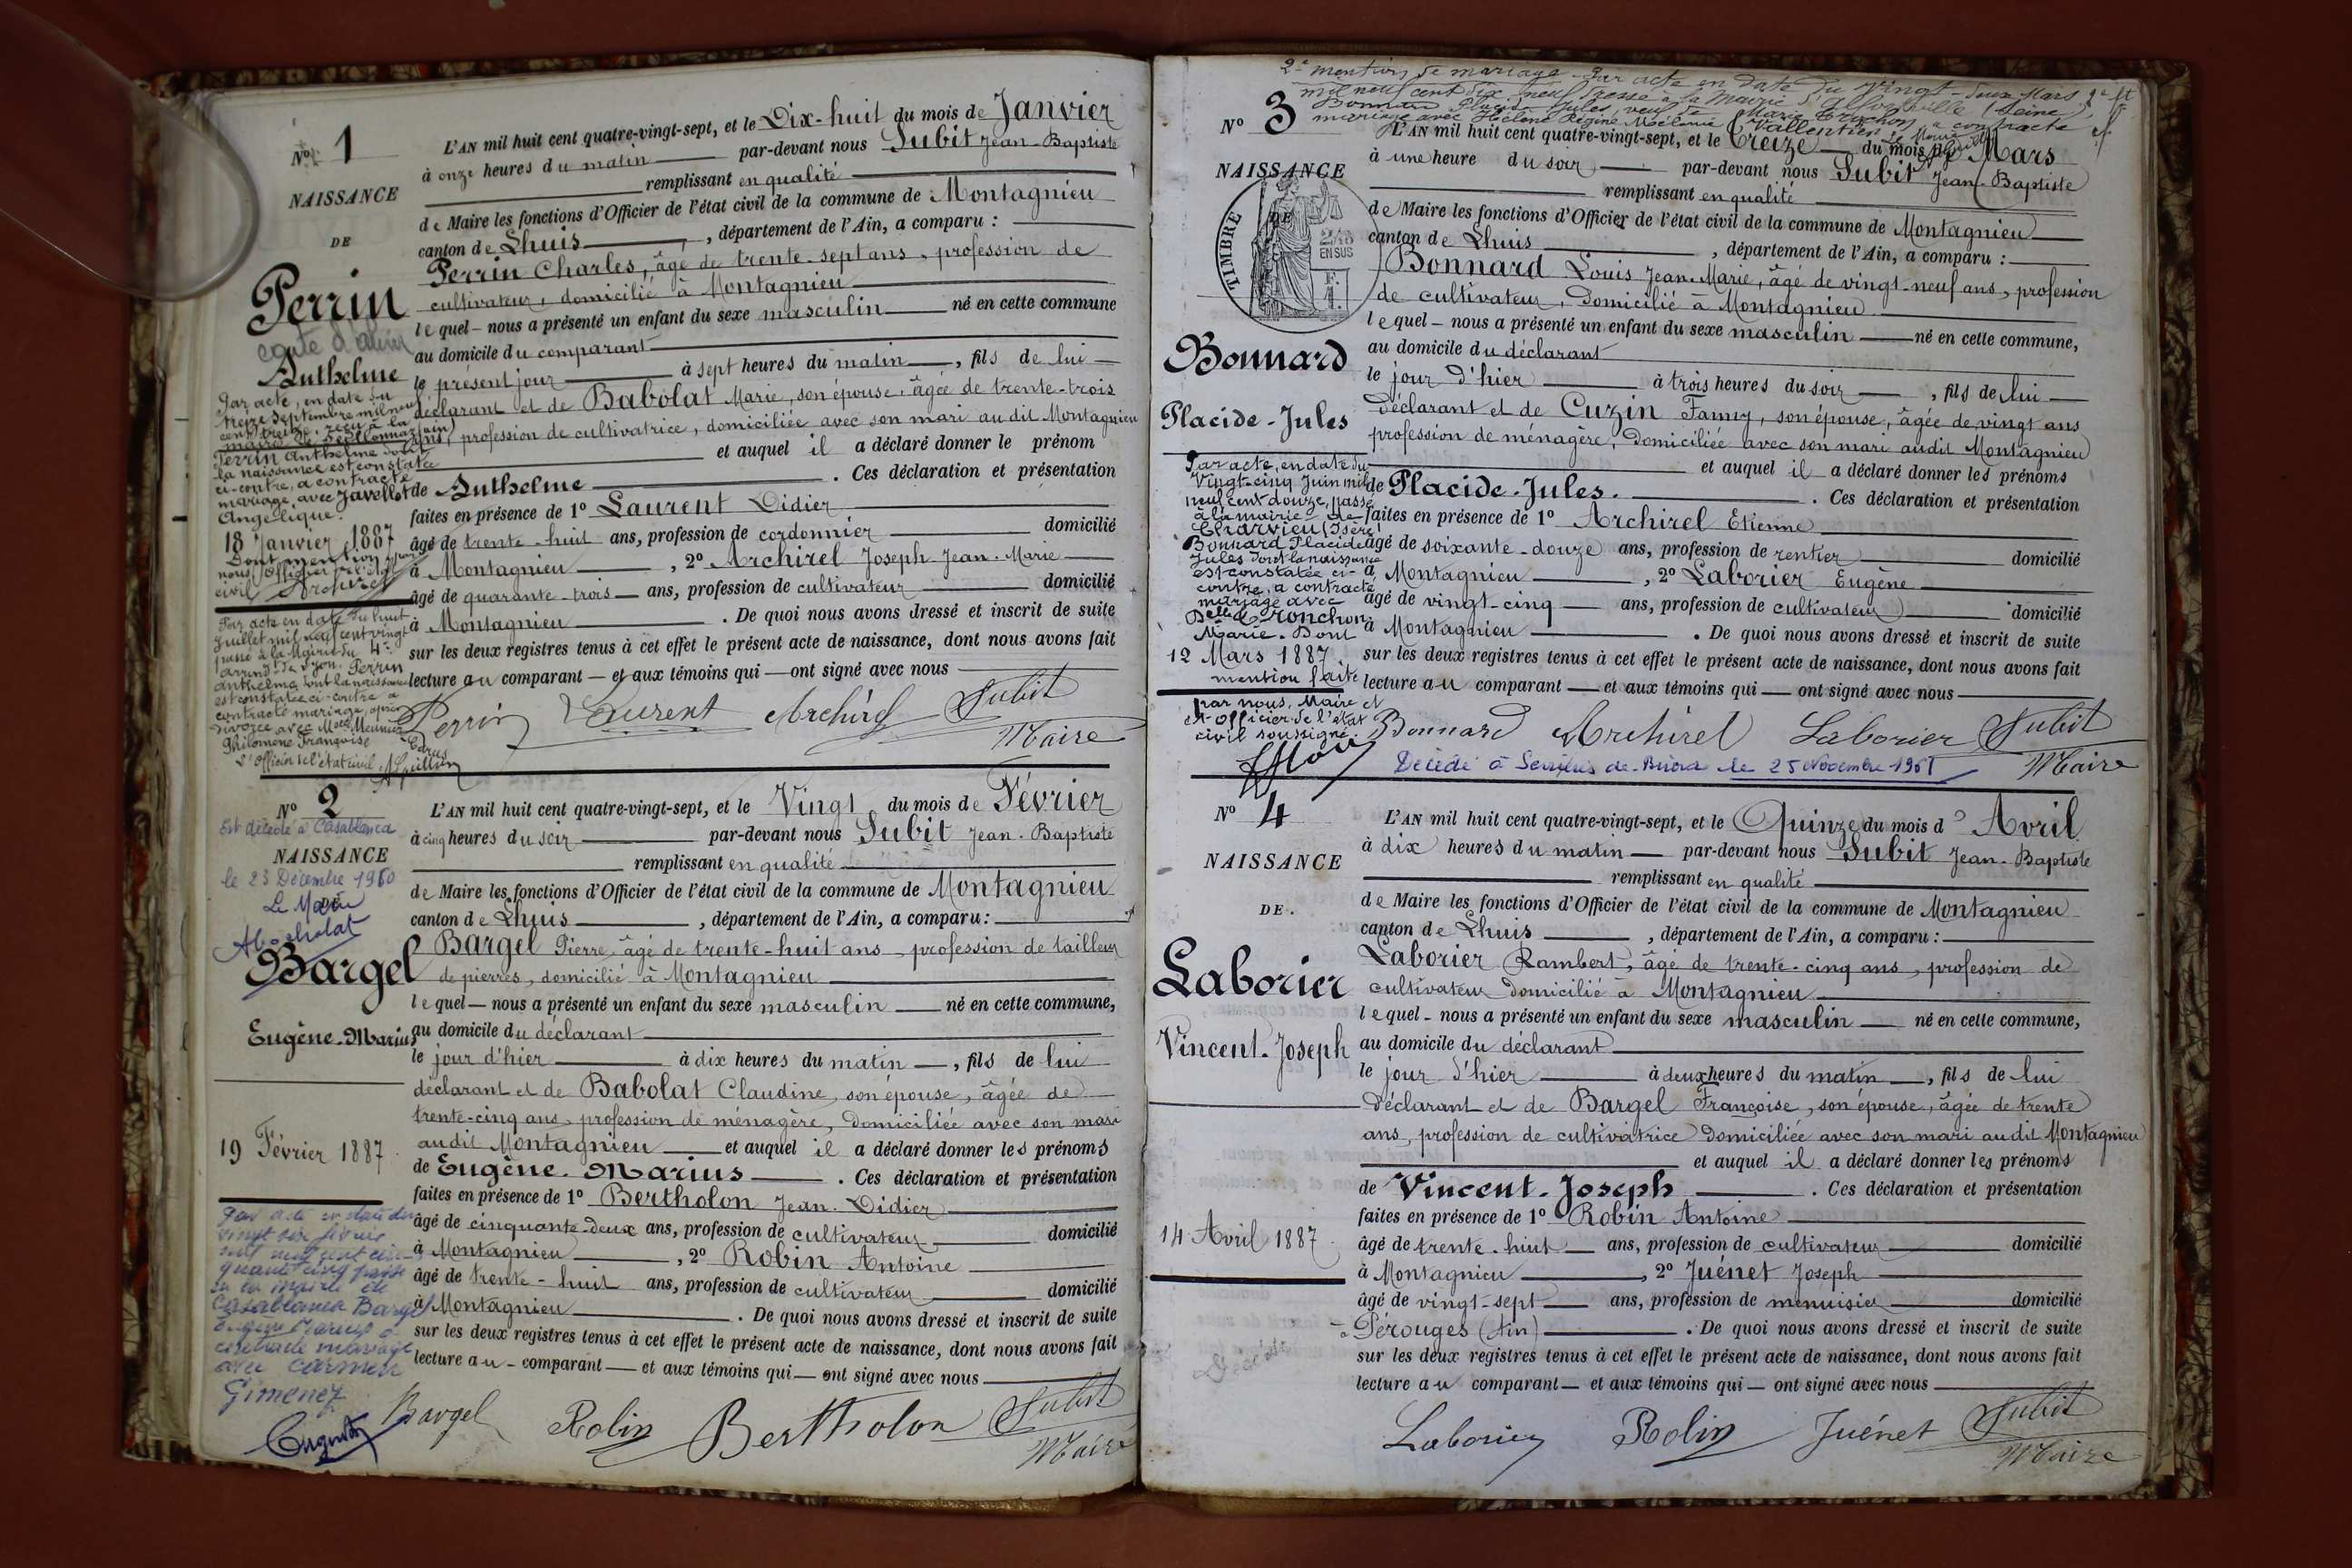 Nº 1
NAISSANCE
DE
Perrin
Anthelme
Par acte, en date du
treize Septembre mil neuf
cent treize, reçu à la
mairie de
Perrin Anthelme dont
la naissance est constatée
ci-contre, a contracté
mariage avec Javellot
Angélique.
18 Janvier 1887
Dont mention par
nous Officier de l'état
civil Archirel
Par acte en date du huit
Juillet mil neuf cent vingt
passé à la Mairie du 4e
arrond.t de Lyon. Perrin
Anthelme dont la naissance
est constatée ci-contre a
contracté mariage, après
divorce avec Meunier
Philomène Françoise
L'Officier de l'état civil
L'AN mil huit cent quatre-vingt-sept, et le Dix-huit du mois de Janvier
à onze heures du matin par-devant nous Subit Jean-Baptiste
remplissant en qualité
de Maire les fonctions d'Officier de l'état civil de la commune de Montagnieu
canton de Lhuis, département de l'Ain, a comparu :
Perrin Charles, âgé de trente-sept ans, profession de
cultivateur, domicilié à Montagnieu
lequel nous a présenté un enfant du sexe masculin né en cette commune
au domicile du comparant
le présent jour à sept heures du matin, fils de lui
déclarant et de Babolat Marie, son épouse, âgée de trente-trois
ans, profession de cultivatrice, domiciliée avec son mari au dit Montagnieu
et auquel il a déclaré donner le prénom
de Anthelme. Ces déclaration et présentation
faites en présence de 1º Laurent Didier
âgé de trente-huit ans, profession de cordonnier domicilié
à Montagnieu, 2º Archirel Joseph-Jean-Marie
âgé de quarante-trois ans, profession de cultivateur domicilié
à Montagnieu. De quoi nous avons dressé et inscrit de suite
sur les deux registres tenus à cet effet le présent acte de naissance, dont nous avons fait
lecture au comparant et aux témoins qui ont signé avec nous
Perrin Laurent Archirel Subit
Maire
Nº 2
Est décédé à Casablanca
NAISSANCE
le 23 Décembre 1960
Le Maire
Bargel
Eugène-Marius
19 Février 1887
Par acte en date du
vingt six février
mil neuf cent cin-
quante cinq passé
à la mairie de
Casablanca Bargel
Eugène Marius a
contracté mariage
avec Carmen
Gimenez
L'AN mil huit cent quatre-vingt-sept, et le Vingt du mois de Février
à cinq heures du soir par-devant nous Subit Jean-Baptiste
remplissant en qualité
de Maire les fonctions d'Officier de l'état civil de la commune de Montagnieu
canton de Lhuis, département de l'Ain, a comparu :
Bargel Pierre, âgé de trente-huit ans, profession de tailleur
de pierres, domicilié à Montagnieu
lequel nous a présenté un enfant du sexe masculin né en cette commune,
au domicile du déclarant
le jour d'hier à dix heures du matin, fils de lui
déclarant et de Babolat Claudine, son épouse, âgée de
trente-cinq ans, profession de ménagère, domiciliée avec son mari
audit Montagnieu et auquel il a déclaré donner les prénoms
de Eugène-Marius. Ces déclaration et présentation
faites en présence de 1º Bertholon Jean-Didier
âgé de cinquante-deux ans, profession de cultivateur domicilié
à Montagnieu, 2º Robin Antoine
âgé de trente-huit ans, profession de cultivateur domicilié
à Montagnieu. De quoi nous avons dressé et inscrit de suite
sur les deux registres tenus à cet effet le présent acte de naissance, dont nous avons fait
lecture au comparant et aux témoins qui ont signé avec nous
Bargel Robin Bertholon Subit
Maire
2e mention de mariage. Par acte en date du vingt-deux Mars
mil neuf cent dix-neuf dressé à la Mairie d'Alfortville (Seine),
Bonnard Placide Jules, veuf de Marie Tronchon, a contracté
mariage avec Hélène Régine Noélanie Vallentien
Nº 3
NAISSANCE
DE
TIMBRE
2/10
EN SUS
F.
1.
Bonnard
Placide-Jules
Par acte, en date du
Vingt-cinq Juin mil
neuf cent douze, passé
à la mairie de
Charvieu (Isère)
Bonnard Placide
Jules dont la naissance
est constatée ci-
contre, a contracté
mariage avec
Delle Tronchon
Marie. Dont
12 Mars 1887
mention faite
par nous, Maire et
Officier de l'état
civil soussigné.
L'AN mil huit cent quatre-vingt-sept, et le Treize du mois de Mars
à une heure du soir par-devant nous Subit Jean-Baptiste
remplissant en qualité
de Maire les fonctions d'Officier de l'état civil de la commune de Montagnieu
canton de Lhuis, département de l'Ain, a comparu :
Bonnard Louis Jean-Marie, âgé de vingt-neuf ans, profession
de cultivateur, domicilié à Montagnieu
lequel nous a présenté un enfant du sexe masculin né en cette commune,
au domicile du déclarant
le jour d'hier à trois heures du soir, fils de lui
déclarant et de Cuzin Fanny, son épouse, âgée de vingt ans
profession de ménagère, domiciliée avec son mari audit Montagnieu
et auquel il a déclaré donner les prénoms
de Placide-Jules. Ces déclaration et présentation
faites en présence de 1º Archirel Etienne
âgé de soixante-douze ans, profession de rentier domicilié
à Montagnieu, 2º Laborier Eugène
âgé de vingt-cinq ans, profession de cultivateur domicilié
à Montagnieu. De quoi nous avons dressé et inscrit de suite
sur les deux registres tenus à cet effet le présent acte de naissance, dont nous avons fait
lecture au comparant et aux témoins qui ont signé avec nous
Bonnard Archirel Laborier Subit
Décédé à le 25 Novembre 1961
Maire
Nº 4
NAISSANCE
DE
Laborier
Vincent-Joseph
14 Avril 1887
L'AN mil huit cent quatre-vingt-sept, et le Quinze du mois d'Avril
à dix heures du matin par-devant nous Subit Jean-Baptiste
remplissant en qualité
de Maire les fonctions d'Officier de l'état civil de la commune de Montagnieu
canton de Lhuis, département de l'Ain, a comparu :
Laborier Rambert, âgé de trente-cinq ans, profession de
cultivateur domicilié à Montagnieu
lequel nous a présenté un enfant du sexe masculin né en cette commune,
au domicile du déclarant
le jour d'hier à deux heures du matin, fils de lui
déclarant et de Bargel Françoise, son épouse, âgée de trente
ans, profession de cultivatrice domiciliée avec son mari audit Montagnieu
et auquel il a déclaré donner les prénoms
de Vincent-Joseph. Ces déclaration et présentation
faites en présence de 1º Robin Antoine
âgé de trente-huit ans, profession de cultivateur domicilié
à Montagnieu, 2º Juénet Joseph
âgé de vingt-sept ans, profession de menuisier domicilié
à Pérouges (Ain). De quoi nous avons dressé et inscrit de suite
sur les deux registres tenus à cet effet le présent acte de naissance, dont nous avons fait
lecture au comparant et aux témoins qui ont signé avec nous
Laborier Robin Juénet Subit
Maire